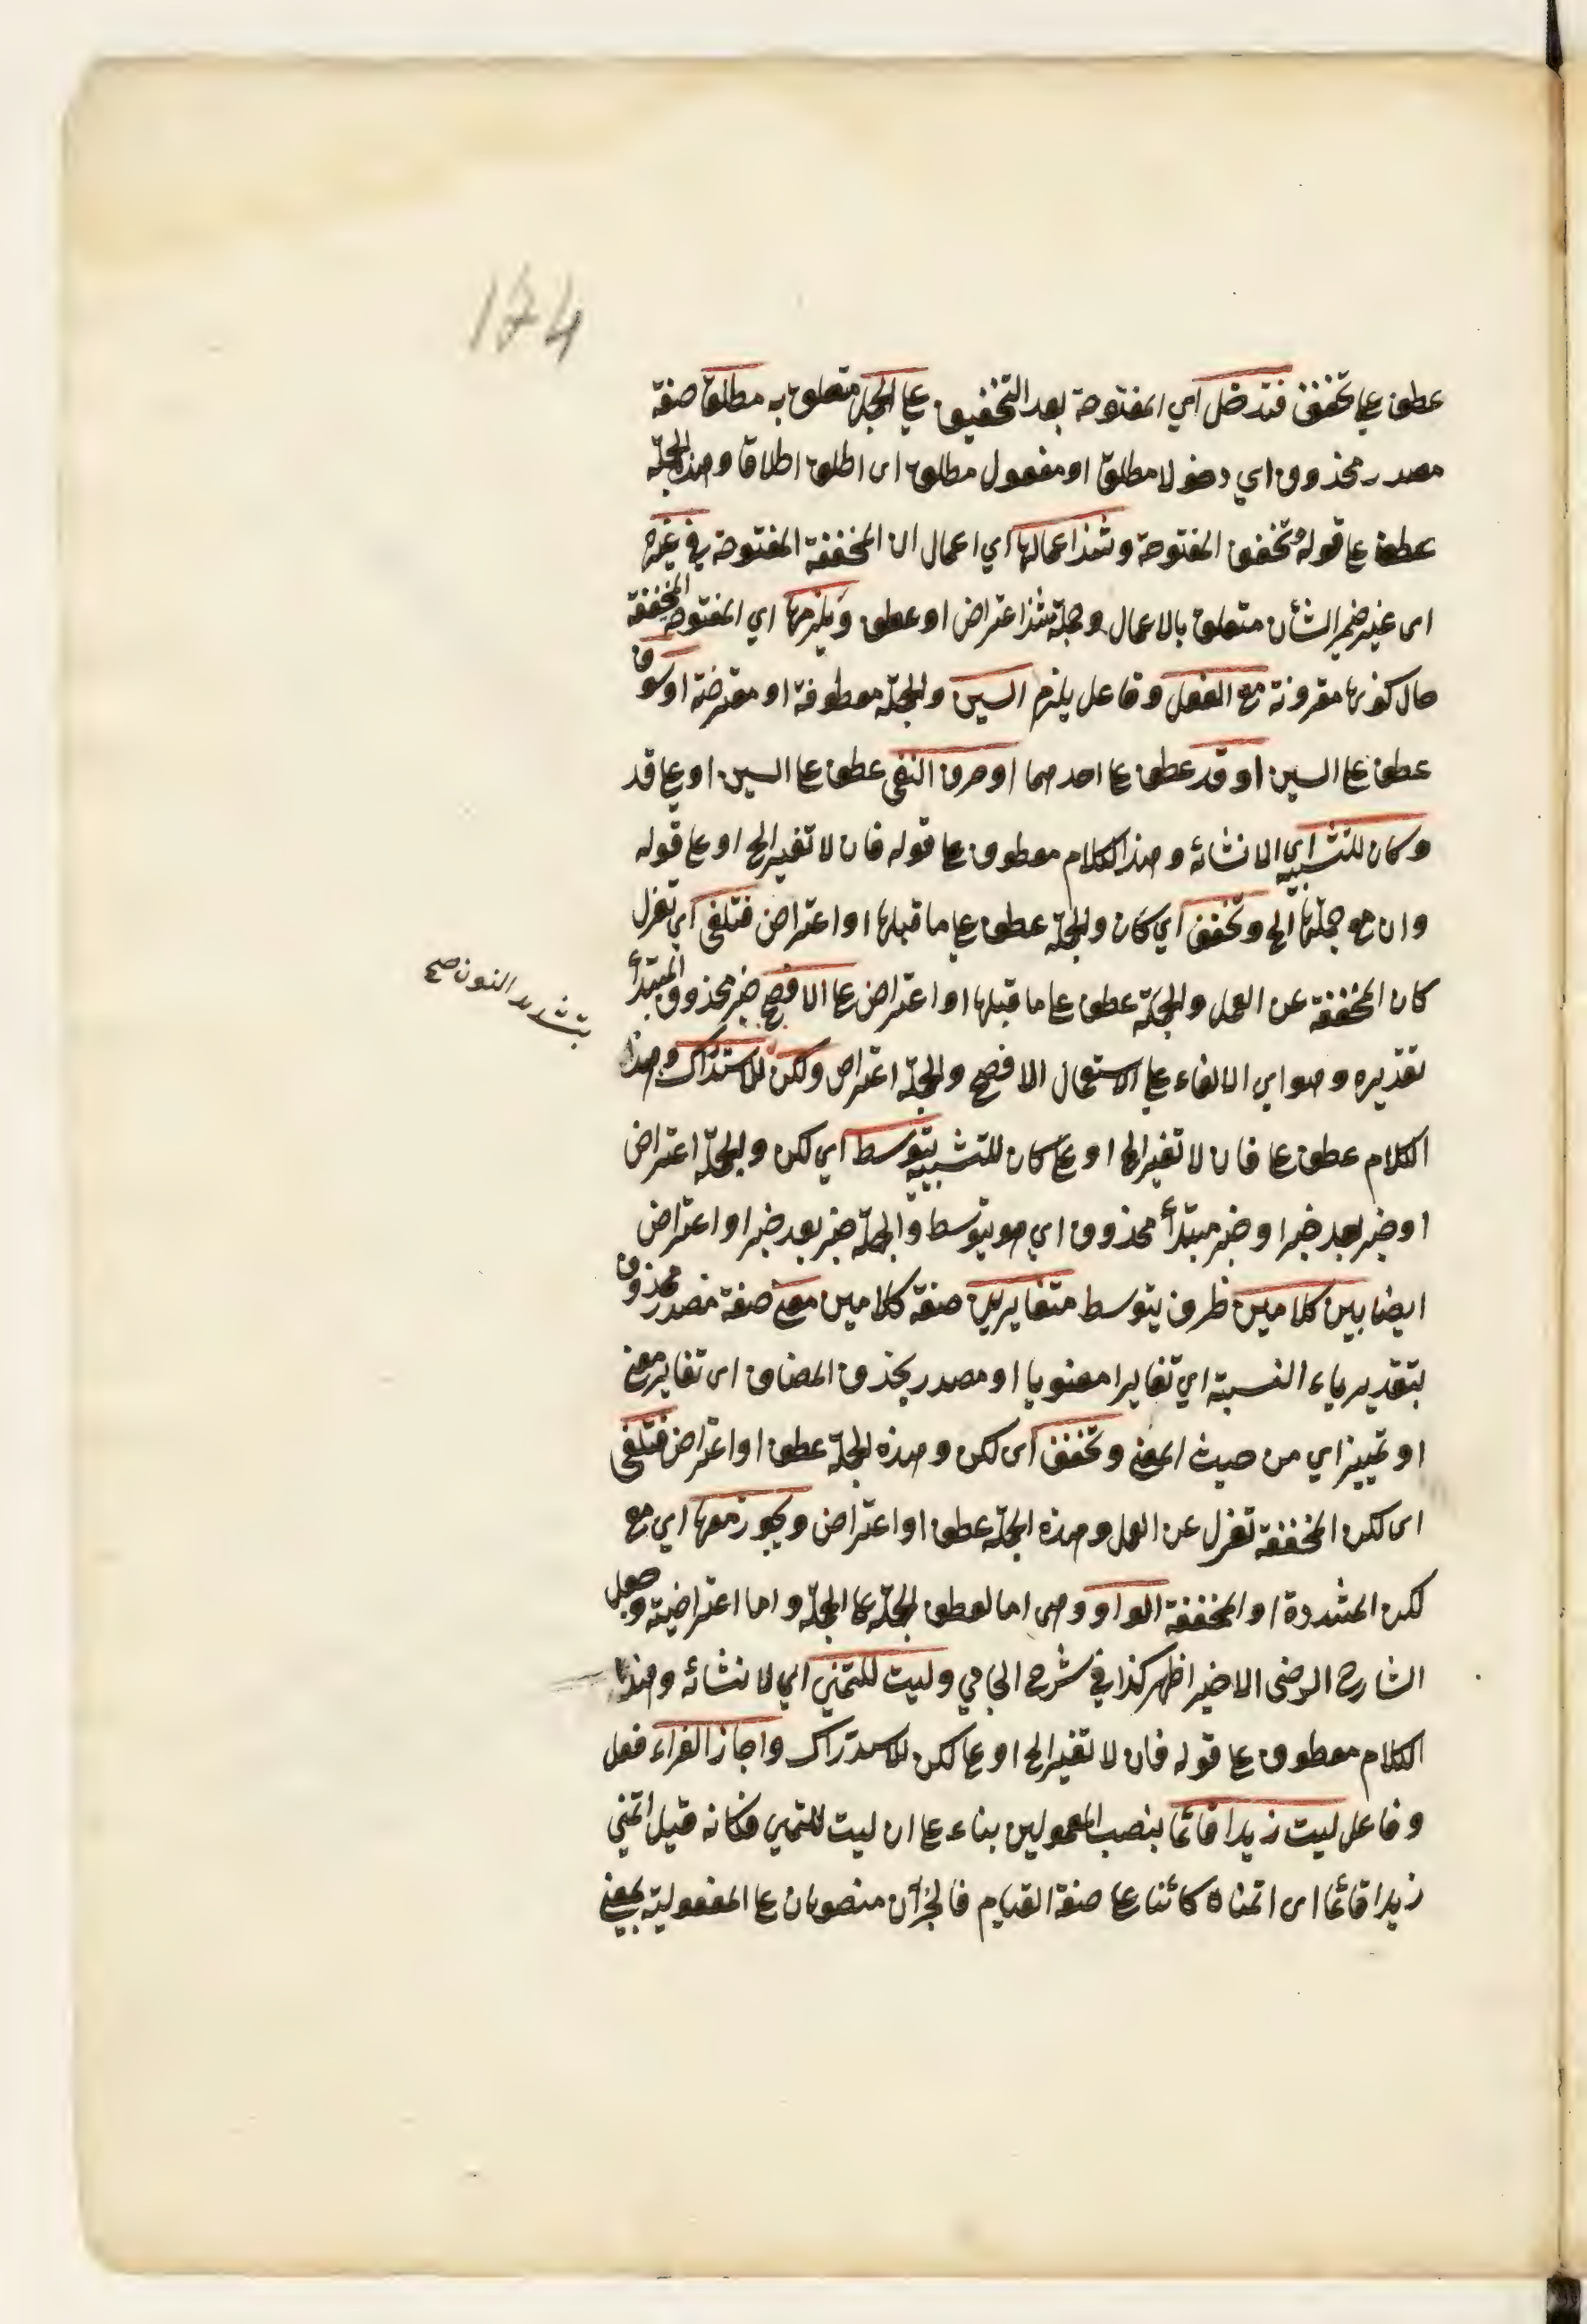 174
عطف على تخفف فتدخل اي المفتوحة بعد التخفيف على الجمل متعلق به مطلقا صفة
مصدر محذوف اي دخولا مطلقا او مفعول مطلق اى اطلق اطلاقا وهذه الجملة
عطف على قوله وتخفف المفتوحة وشذ اعمالها اي اعمال ان المخففة المفتوحة في غيره
اى غير ضمير الشأن متعلق بالاعمال وجملة شذ اعتراض او عطف ويلزمها اي المفتوحة المخففة
حال كونها مقرونة مع الفعل وفاعل يلزم السين والجملة معطوفة او معترضة او سوف
عطف على السين او قد عطف على احدهما او حرف النفى عطف على السين او على قد
وكان للتشبيه اي لانشائه وهذا الكلام معطوف على قوله فان لا تغير الخ او على قوله
وان مع جملتها الخ وتخفف اي كان والجملة عطف على ما قبلها او اعتراض فتلغى اي تعزل
كان المخففة عن العمل والجملة عطف على ما قبلها او اعتراض على الافصح خبر محذوف المبتدأ
بتشديد النون صح
تقديره وهو اي الالغاء على الاستعمال الافصح والجملة اعتراض ولكن للاستدراك وهذا
الكلام عطف على فان لا تغير الخ او على كان للتشبيه يتوسط اي لكن والجملة اعتراض
او خبر بعد خبر او خبر مبتدأ محذوف اي هو يتوسط والجملة خبر بعد خبر او اعتراض
ايضا بين كلامين ظرف يتوسط متغايرين صفة كلامين معنى صفة مصدر محذوف
بتقدير ياء النسبة اي تغايرا معنويا او مصدر بحذف المضاف اى تغاير معنى
او تمييز اي من حيث المعنى وتخفف اى لكن وهذه الجملة عطف او اعتراض فتلغى
اى لكن المخففة تعزل عن العمل وهذه الجملة عطف او اعتراض ويجوز معها اي مع
لكن المشددة او المخففة الواو وهى اما لعطف الجملة على الجملة واما اعتراضية وجعل
الشارح الرضى الاخير اظهر كذا في شرح الجامي وليت للتمني اي لانشائه وهذا
الكلام معطوف على قوله فان لا تغير الخ او على لكن للاستدراك واجاز الفراء فعل
وفاعل ليت زيدا قائما بنصب المعمولين بناء على ان ليت للتمني فكانه قيل اتمني
زيدا قائما اى اتمناه كائنا على صفة القيام فالجزآن منصوبان على المفعولية بمعنى